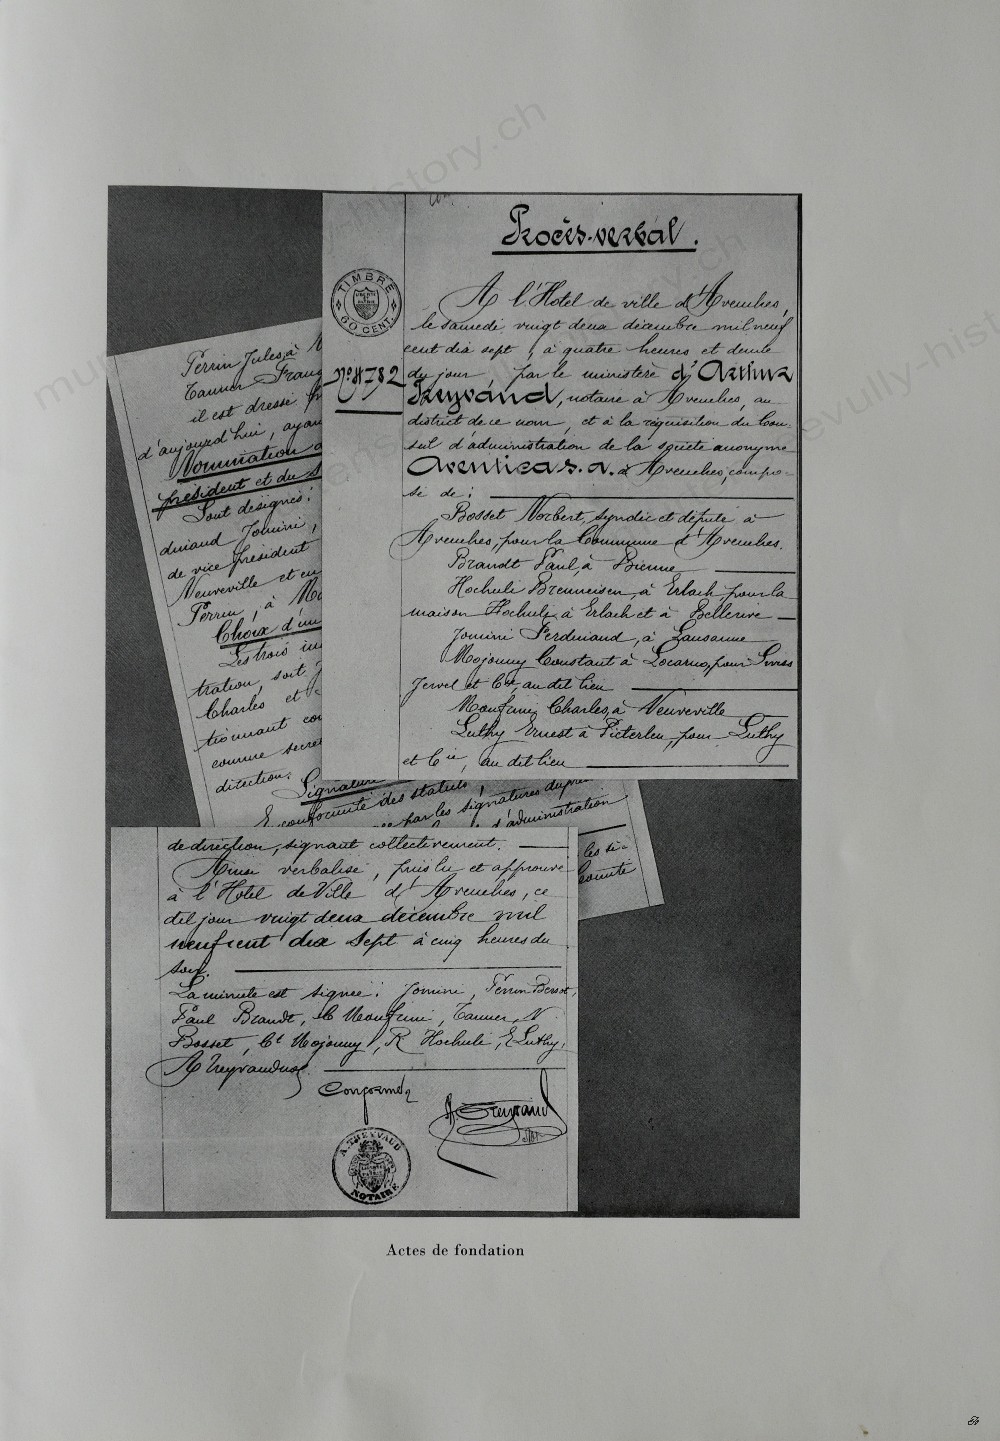 Procès-verbal.
A l'Hôtel de ville d'Avenches,
le samedi vingt deux décembre mil neuf
cent dix sept, à quatre heures et demie
du jour, par le ministère d'Arthur
Treyvaud, notaire à Avenches, au
district de ce nom, et à la réquisition du Con-
seil d'administration de la société anonyme
Aventica s.a. à Avenches, compo-
sé de:
Bosset Norbert, syndic et député à
Avenches, pour la Commune d'Avenches.
Brandt Paul, à Bienne
Hochuli Brenneisen, à Erlach, pour la
maison Hochuli, à Erlach et à Bellerive
Jomini Ferdinand, à Lausanne
Mojonny Constant à Locarno, pour Swiss
Jewel et Cie, au dit lieu
Monfrini Charles, à Neuveville
Luthy Ernest à Pieterlen, pour Luthy
et Cie, au dit lieu
TIMBRE
60 CENT.
No 4782
Perrin Jules, à
Tanner
il est dressé
d'aujourd'hui, ayan
Nomination
président et du
Sont désignés:
dinand Jomini,
de vice président
Neuveville et en
Perrin, à
Choix d'un
Les trois
tration, soit
Charles et
tionnant
comme secré
direction.
Signature
En conformité des statuts,
par les signatures du
d'administration
les si-
comité
de direction, signant collectivement.
Ainsi verbalisé, puis lu et approuvé
à l'Hôtel de Ville d'Avenches, ce
dit jour vingt deux décembre mil
neuf cent dix sept à cinq heures du
soir.
La minute est signée: Jomini, Perrin-Bersot,
Paul Brandt, Ch Monfrini, Tanner, N.
Bosset, Ct Mojonny, R Hochuli, E Luthy,
A Treyvaud not
Conforme
A. Treyvaud
not.
A. TREYVAUD
NOTAIRE
Actes de fondation